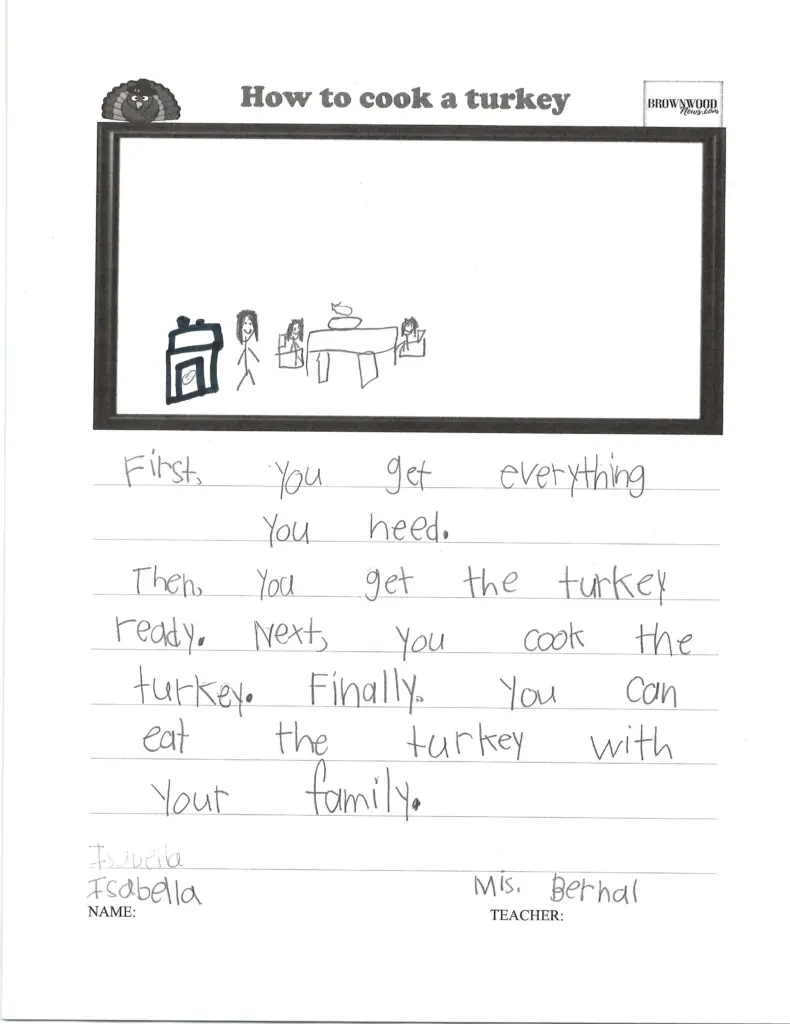 How to cook a turkey
BROWNWOOD
News.com
First, you get everything
you need.
Then, you get the turkey
ready. Next, you cook the
turkey. Finally, you can
eat the turkey with
your family.
Isabella
Isabella
NAME:
Mis. Bernal
TEACHER: